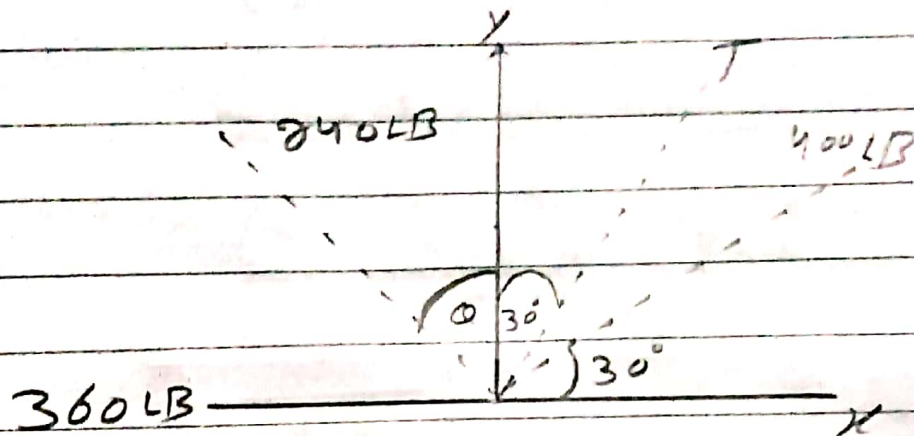 Y
T
240LB
400LB
θ 30°
30°
360LB
X